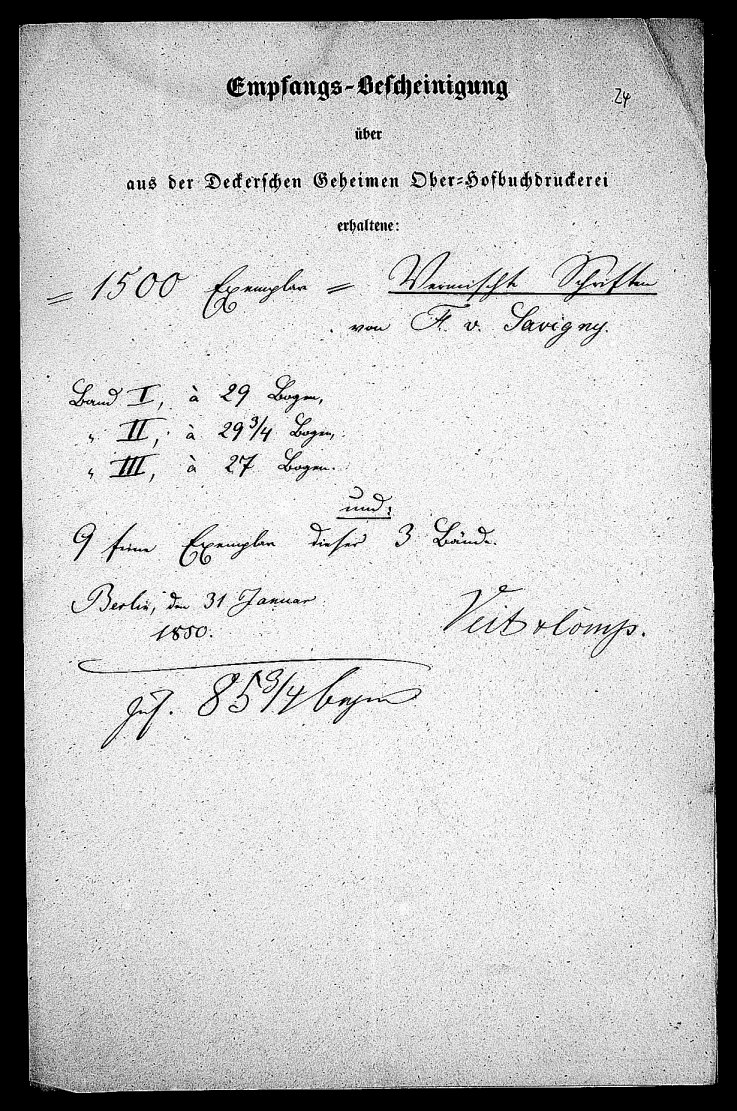 Empfangs-Bescheinigung
24
über
aus der Deckerschen Geheimen Ober-Hofbuchdruckerei
erhaltene:
= 1500 Exemplar = Vermischte Schriften
von F. v. Savigny.
Band I, à 29 Bogen,
" II, à 29 3/4 Bogen,
" III, à 27 Bogen.
und:
9 feine Exemplar dieser 3 Bände.
Berlin, den 31 Januar
1850.
Veit & Comp.
zus. 85 3/4 bogen